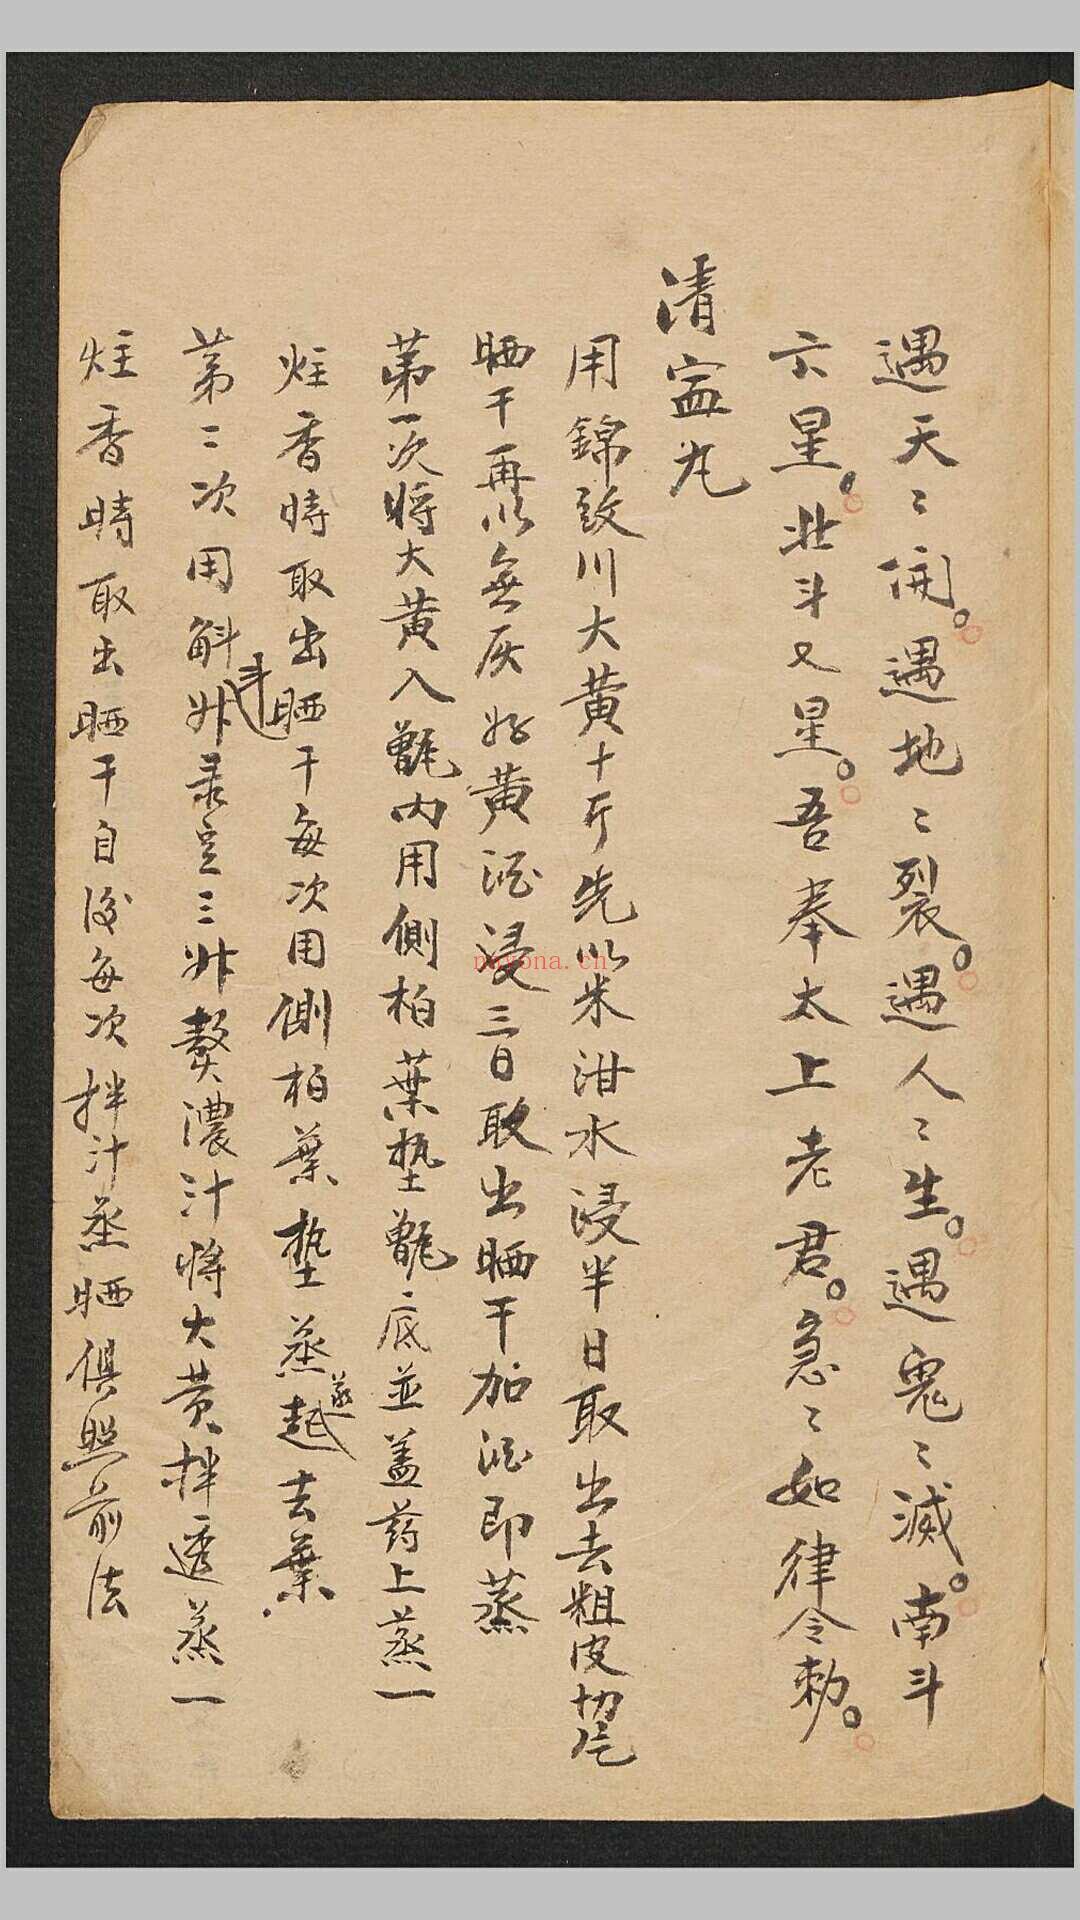 遇天〻開。遇地〻裂。遇人〻生。遇鬼〻滅。南斗
六星。北斗七星。吾奉太上老君。急〻如律令勅。
清寧丸
用錦紋川大黃十斤先以米泔水浸半日取出去粗皮切片
晒干再以無灰好黃酒浸三日取出晒干加酒即蒸
第一次將大黃入甑內用側柏葉墊甑底並盖药上蒸一
炷香時取出晒干每次用側柏葉墊蒸起蒸去葉
第二次用斛斗外彔豆三升熬濃汁將大黃拌透蒸一
炷香時取出晒干自後每次拌汁蒸晒俱照前法
nayona.cn